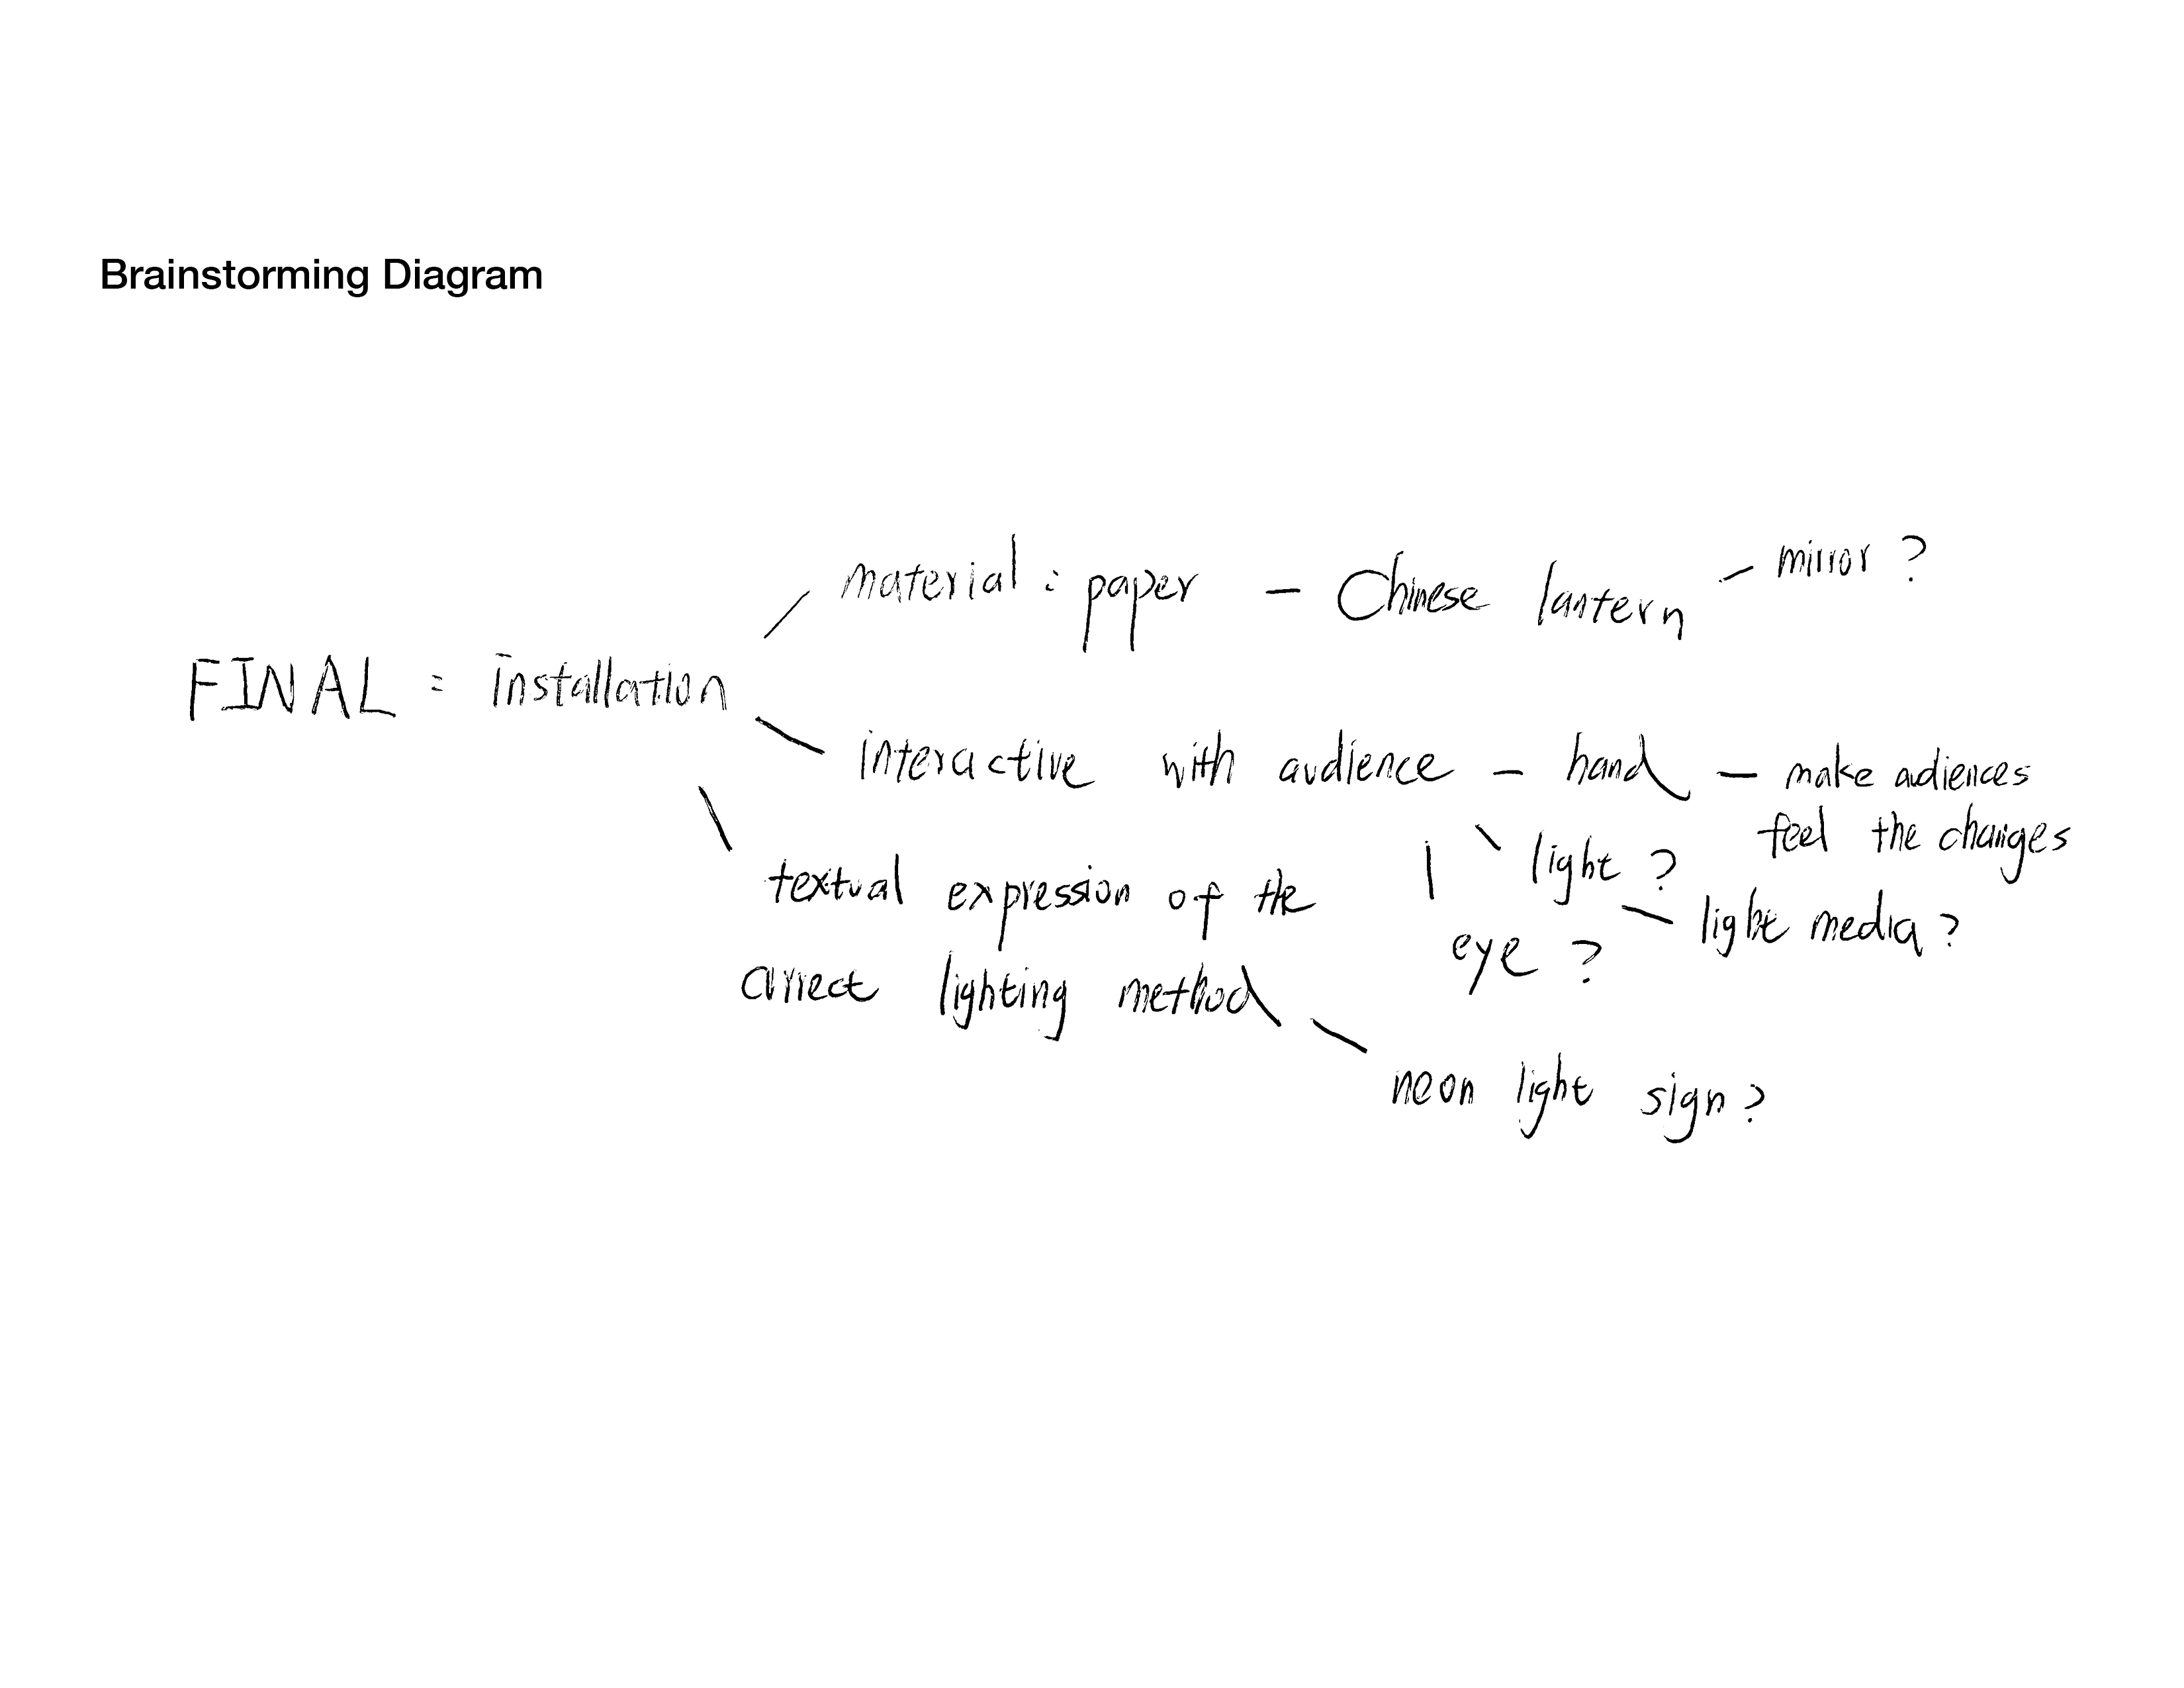 Brainstorming Diagram
material : paper – Chinese lantern – mirror ?
FINAL = installation
interactive with audience – hand – make audiences
feel the changes
light ?
light media ?
eye ?
textual expression of the
correct lighting method
neon light sign ?